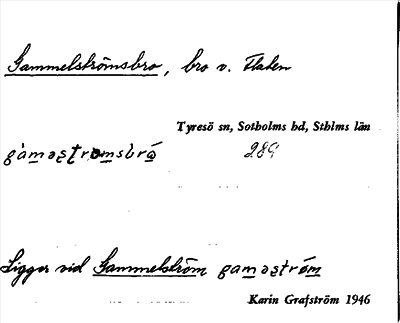 Gammelströmsbro, bro v. Flaten
Tyresö sn, Sotholms hd, Sthlms län
gàmǝstrømsbró 289
Ligger vid Gammelström gamǝstrøm
Karin Grafström 1946